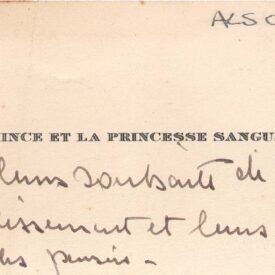 ALS
INCE ET LA PRINCESSE SANGUS
leurs souhaits de
issement et leurs